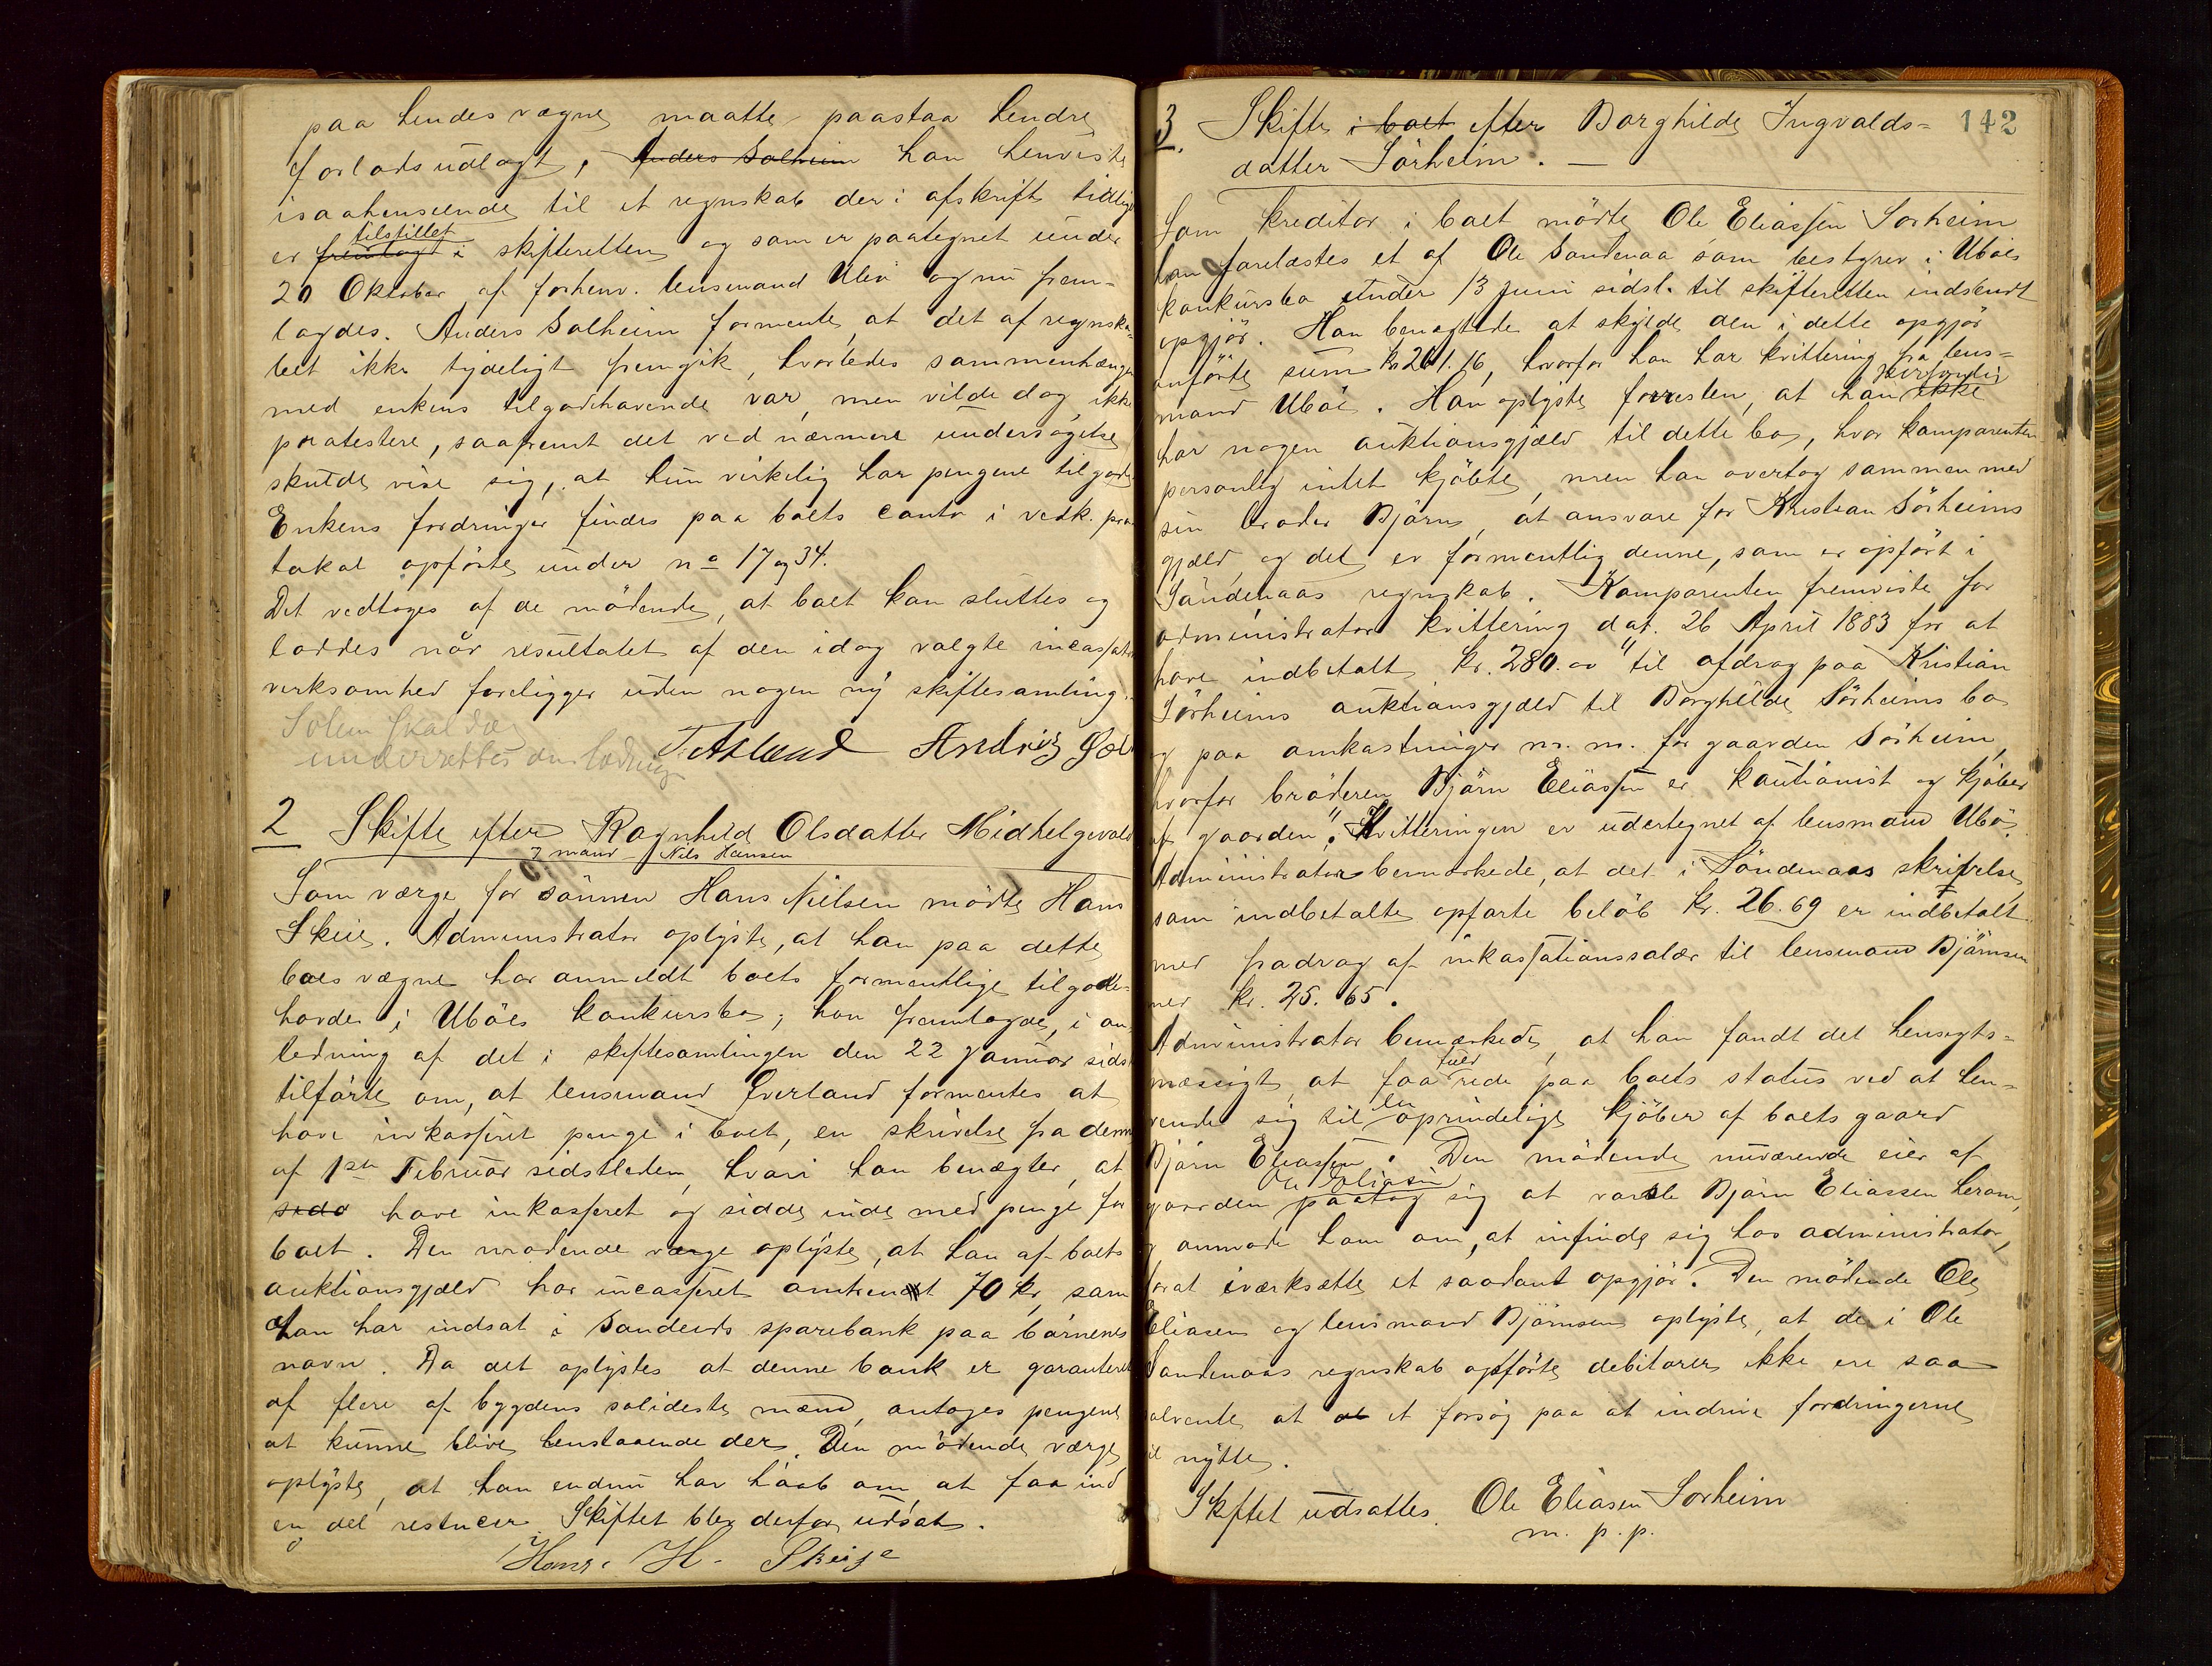 paa hendes vægne maatte paastaa hendre
forlods udlagt, Anders Solheim han henviste
isaahenseende til et regnskab der i afskrift tidlige
tilstillet
er fremlagt i skifteretten og som er paategnet under
20 Oktober af forhenv. lensmand Ubøe og nu frem-
lagdes. Anders Solheim formente, at det af regnska-
bet ikke tydeligt fremgik, hvorledes sammenhængen
med enkens tilgodehavende var, men vilde dog ikke
protestere, saafremt det ved nærmere undersøgelse
skulde vise sig, at hun virkelig har pengene tilgode
Enkens fordringer findes paa boets conto i vedk. pro-
tokol opførte under no 17 og 34.
Det vedtoges af de mødende, at boet kan sluttes og
loddes når resultatet af den idag valgte incassators
verksomhed foreligger uden nogen ny skiftesamling.
Solem skal da
underrettes om lodning
T. Asland Andrис Sol
2 Skifte efter Ragnhild Olsdatter Midhelgevold
J mand Nils Hansen
Som værge for sønnen Hans Nielsen mødte Hans
Skeie. Administrator oplyste, at han paa dette
boes vægne har anmeldt boets formentlige tilgode-
havde i Ubøes konkursbo; han fremlagde, i an-
ledning af det i skiftesamlingen den 22 Januar sidst
tilførte om, at lensmand Qverland formentes at
have inkasseret penge i boet, en skrivelse fra denne
af 1ste Februar sidstleden, hvori han benægter, at
sidd have inkasseret og sidde inde med penge for
boet. Den mødende værge oplyste, at han af boets
auktionsgjæld har incasseret omtrent 70 kr, som
han har indsat i Sandeids sparebank paa børnenes
navn. Da det oplystes at denne bank er garanteret
af flere af bygdens solideste mænd, antoges pengene
at kunne blive henstaaende der. Den mødende værge
oplyste, at han endnu har håab om at faa ind
en del restncer. Skiftet blev derfor udsat.
Hans. H. Skeije
142
3. Skifte i boet efter Borghilde Ingvalds-
datter Sørheim. —
Som kreditor i boet mødte Ole Eliassen Sørheim
han forelæstes et af Ole Søndenaa som bestyrer i Ubøes
konkursbo under 13 Juni sidstl. til skifteretten indsendt
opgjør. Han benægtede at skylde den i dette opgjør
anførte sum kr 261.16, hvorfor han har kvittering fra lens-
personlig
mand Ubøe. Han oplyste forresten, at han ikke
har nogen auktionsgjæld til dette bo, hvor komparenten
personlig intet kjøbte, men han overtog sammen med
sin broder Bjørn, at ansvare for Kristian Sørheims
gjæld, og det er formentlig denne, som er opført i
Søndenaas regnskab. Komparenten fremviste for
administrator kvittering dat. 26 April 1883 for at
have indbetalt kr. 280.00 "til afdrag paa Kristian
Sørheims auktionsgjæld til Borghilde Sørheims bo
og paa omkostninger m. m. for gaarden Sørheim,
hvorfor brøderen Bjørn Eliassen er kautionist og kjøber
af gaarden". Kvitteringen er udertegnet af lensmand Ubø.
Administrator bemærkede, at det i Søndenaas skrivelse
som indbetalte opførte beløb kr. 26.69 er indbetalt
med fradrag af inkassationssalær til lensmand Bjørnsen
med kr. 25.65.
Administrator bemærkede, at han fandt det hensigts-
fuld
mæssigt, at faa rede paa boets status ved at hen-
den
vende sig til oprindelige kjøber af boets gaard
Bjørn Eliassen. Den mødende nuværende eier af
Ole Eliasen
gaarden paatog sig at varsle Bjørn Eliassen herom,
og anmode ham om, at infinde sig hos administrator,
forat iværksætte et saadant opgjør. Den mødende Ole
Eliasen og lensmand Bjørnsen oplyste, at de i Ole
Søndenaas regnskab opførte debitorer ikke ere saa
solvente, at at et forsøg paa at indrive fordringerne
til nytte.
Skiftet udsattes. Ole Eliasen Sørheim
m. p. p.